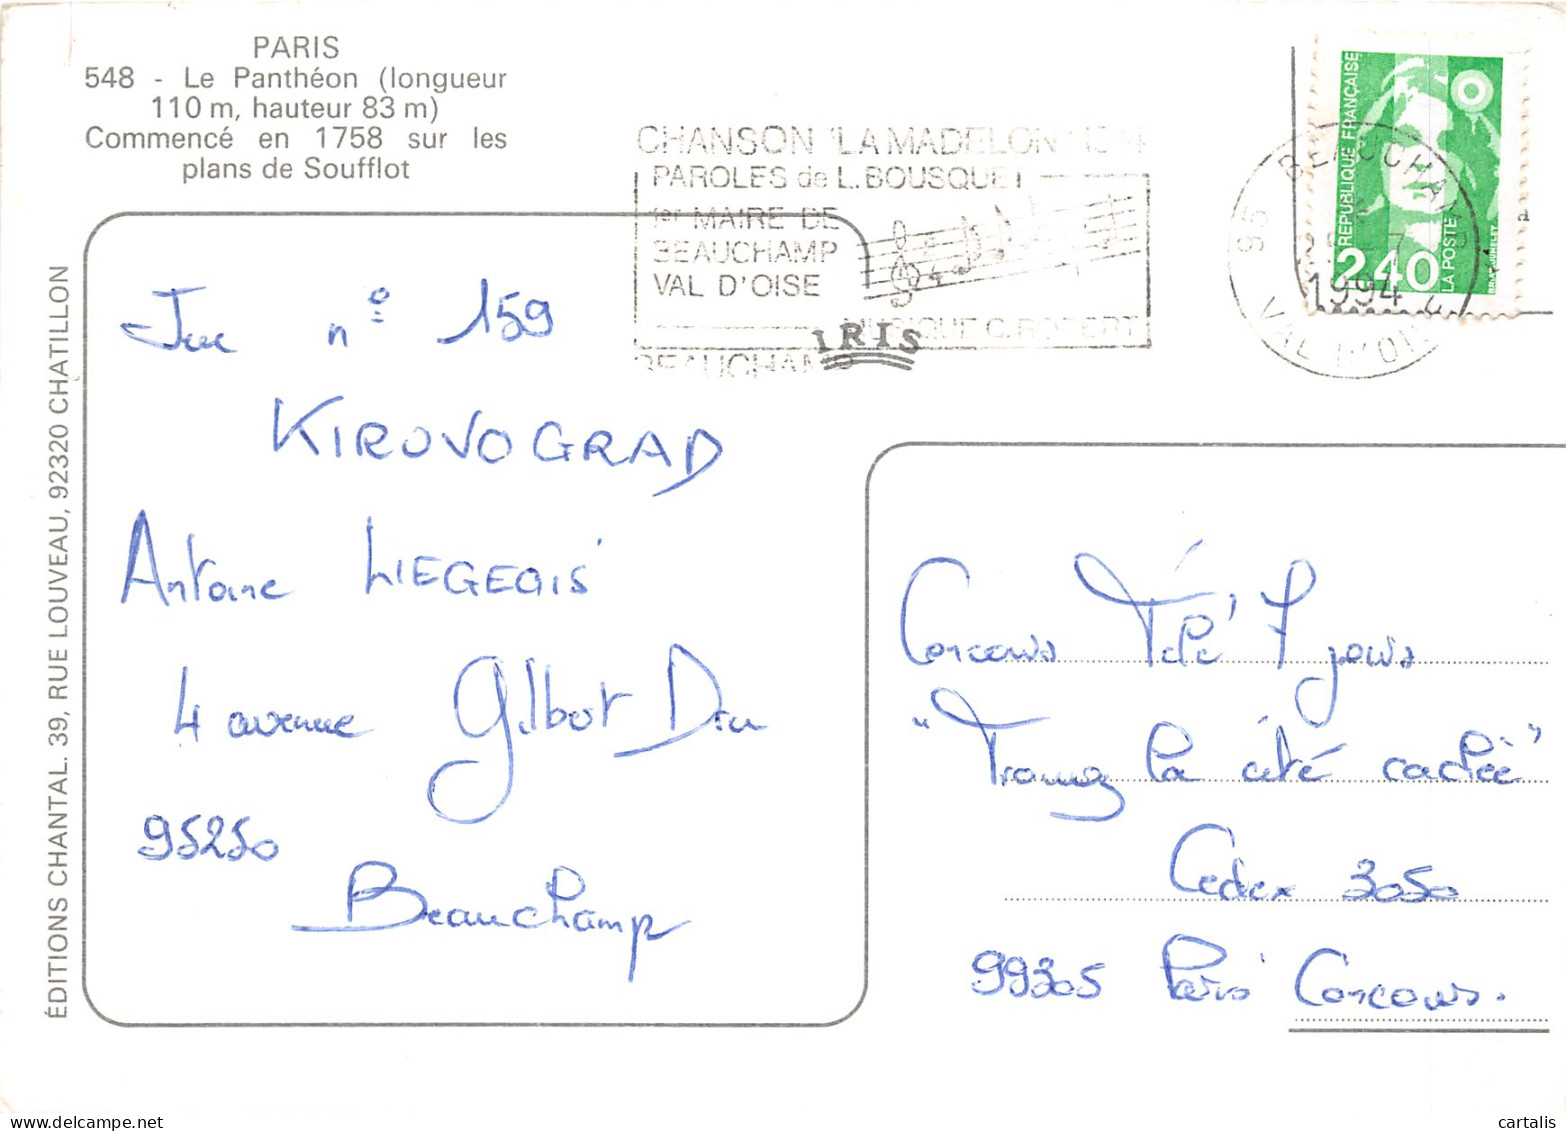 PARIS
548 - Le Panthéon (longueur
110 m, hauteur 83 m)
Commencé en 1758 sur les
plans de Soufflot
ÉDITIONS CHANTAL. 39, RUE LOUVEAU, 92320 CHATILLON
CHANSON "LA MADELON"
PAROLES de L. BOUSQUET
1er MAIRE DE
BEAUCHAMP
VAL D'OISE
MUSIQUE C. ROBERT
BEAUCHAMP
IRIS
95 BEAUCHAMP
1994
VAL D'OISE
RÉPUBLIQUE FRANÇAISE
2,40
LA POSTE
Jeu n° 159
KIROVOGRAD
Antoine LIEGEOIS
4 avenue Gilbot Dru
95250
Beauchamp
Concours Télé 7 jours
"Trouvez la cité cachée"
Cedex 3050
99305 Paris Concours.
cartalis
www.delcampe.net